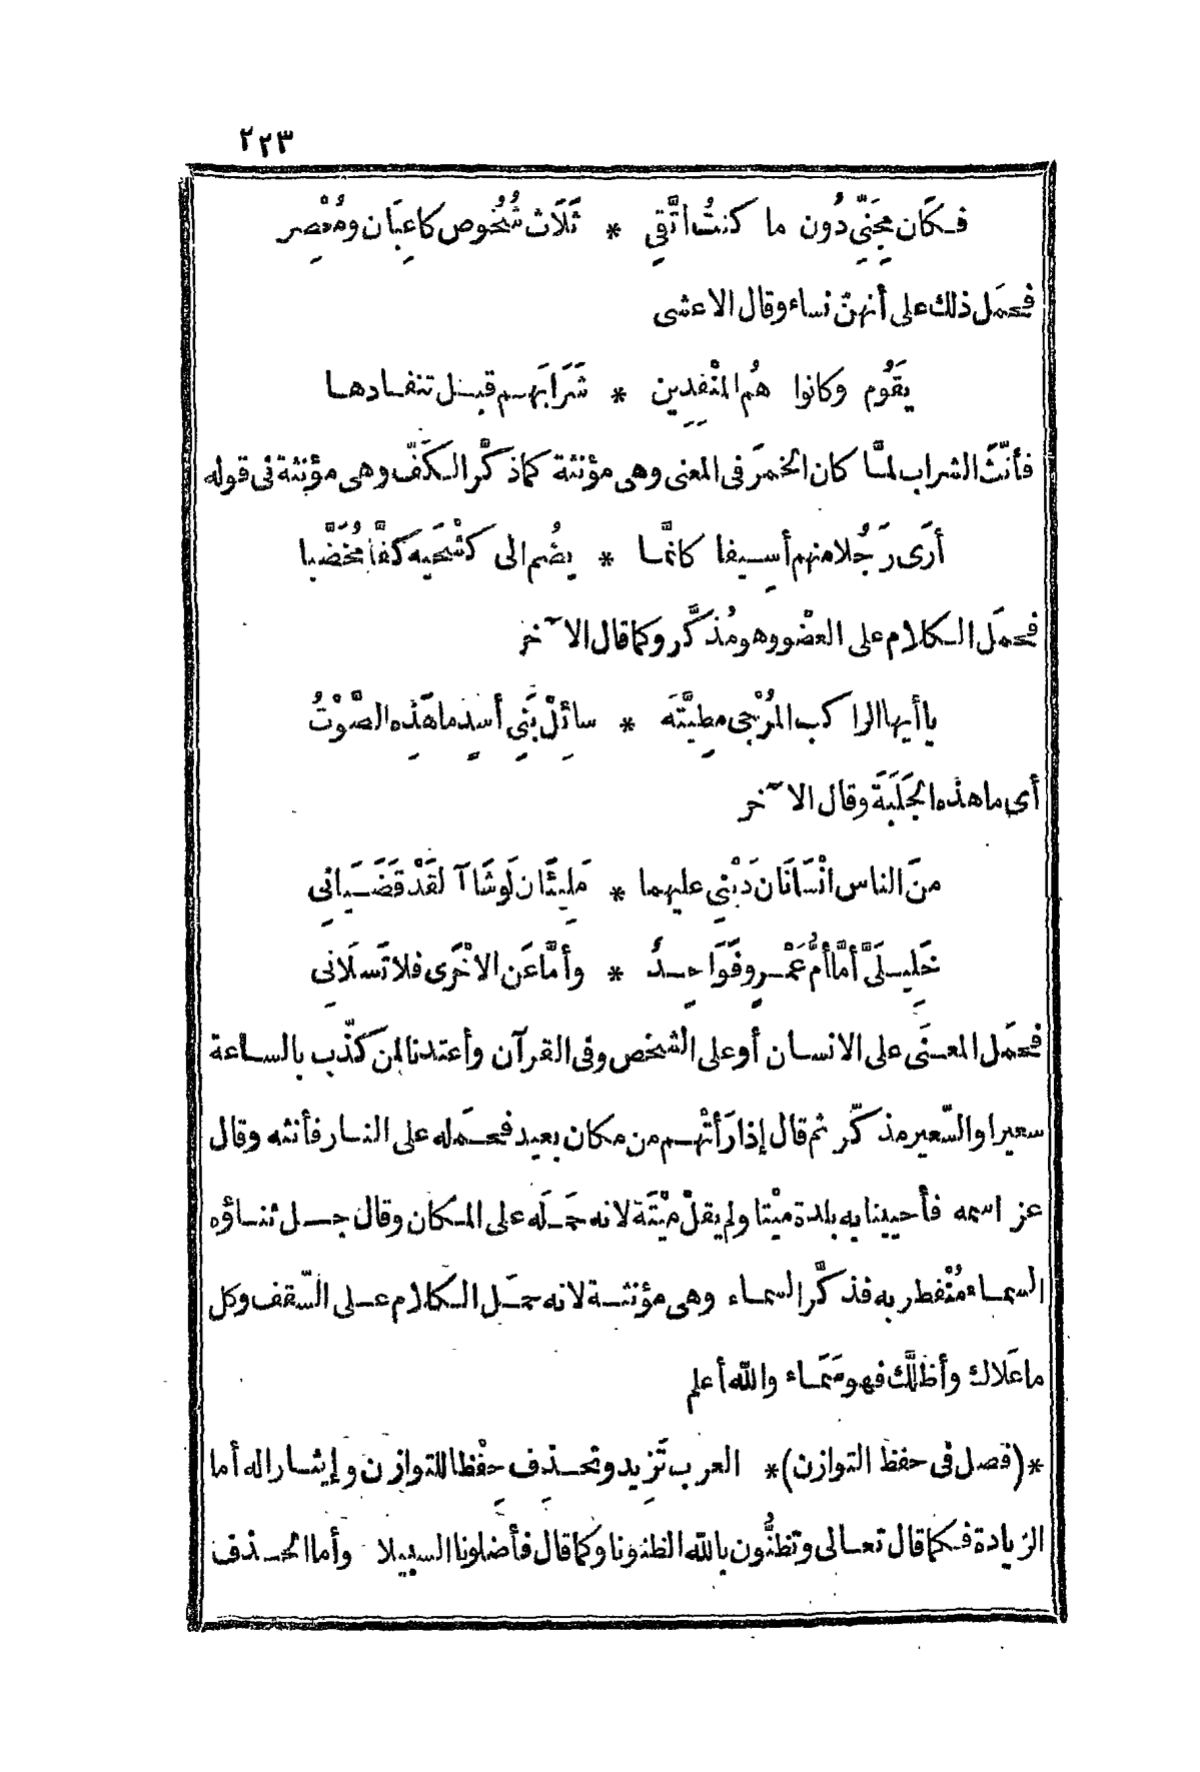 ٢٢٣
فكَان مِجَنِّي دُون ما كنتُ اتَّقِي * ثَلَاث شُخُوص كاعِبَان ومُعْصِر
فحمَل ذلك على أنهنّ نساء وقال الاعشى
يَقُوم وكانوا هُم المنْفِدِين * شَرَابَهم قبل تنفادها
فأنّثَ الشراب لمَّا كان الخمرَ فى المعنى وهى مؤنثة كما ذكَّر الكَفّ وهى مؤنثة فى قوله
أرَى رَجُلا منهم أسِيفا كانَّما * يضُم الى كشْحَيه كفًّا مُخَضَّبا
فحمَل الكلام على العضْو وهو مُذكَّر وكما قال الآخر
يا أيها الراكب المُزْجى مطِيَّتَه * سائِلْ بَنِي أسَدٍ ما هَذِه الصَّوْتُ
أى ما هذه الجَلَبَة وقال الآخر
منَ الناس انْسَانَان دَيْنِي عليهما * مَلِيئَان لَوشَاآ لقَدْ قَضَيَانِي
خَلِيلَىَّ أمَّا أمُّ عَمْرٍو فَوَاحِدٌ * وأمَّا عَن الاخْرَى فلا تَسَلَانِي
فحمَل المعنَى على الانسان أو على الشخص وفى القرآن وأعتدنا لمن كذّب بالساعة
سعيرا والسّعير مذكّر ثم قال إذا رَأتْهم من مكان بعيد فحمَله على النار فأنثه وقال
عز اسمه فأحيينا به بلدة ميْتا ولم يقلْ ميْتَة لانه حَمَلَه على المكان وقال جل ثناؤه
السماء مُنْفطر به فذكَّر السماء وهى مؤنثة لانه حمَل الكلام على السّقف وكل
ما عَلاك وأظلَّك فهو سَمَاء والله أعلم
*(فصل فى حفظ التوازن)* العرب تَزِيد وتحذِف حِفْظا للتوازن وإيثارا له أما
الزيادة فكما قال تعالى وتظنُّون بالله الظنونا وكما قال فأضلونا السبيلا وأما الحذف